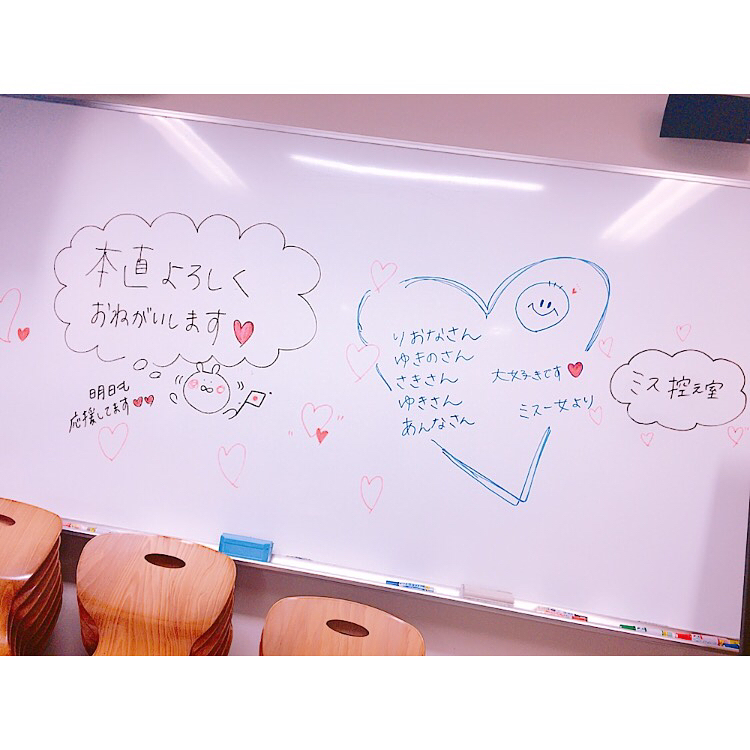 本直よろしく
おねがいします
明日も
応援してます
りおなさん
ゆきのさん
さきさん
ゆきさん
あんなさん
大好きです
ミス一女より
ミス控え室